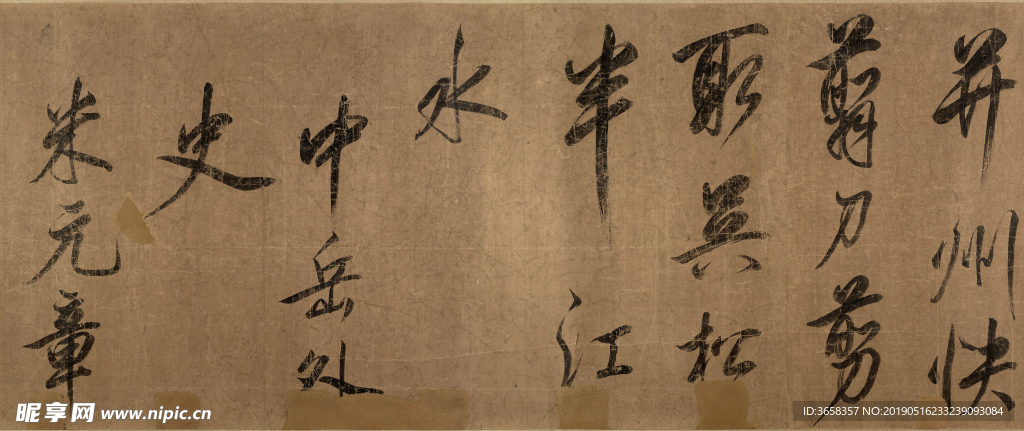 并州快
翦刀剪
取吳松
半江
水
中岳外
史
米元章
昵享网 www.nipic.cn
ID:3658357 NO:20190516233239093084